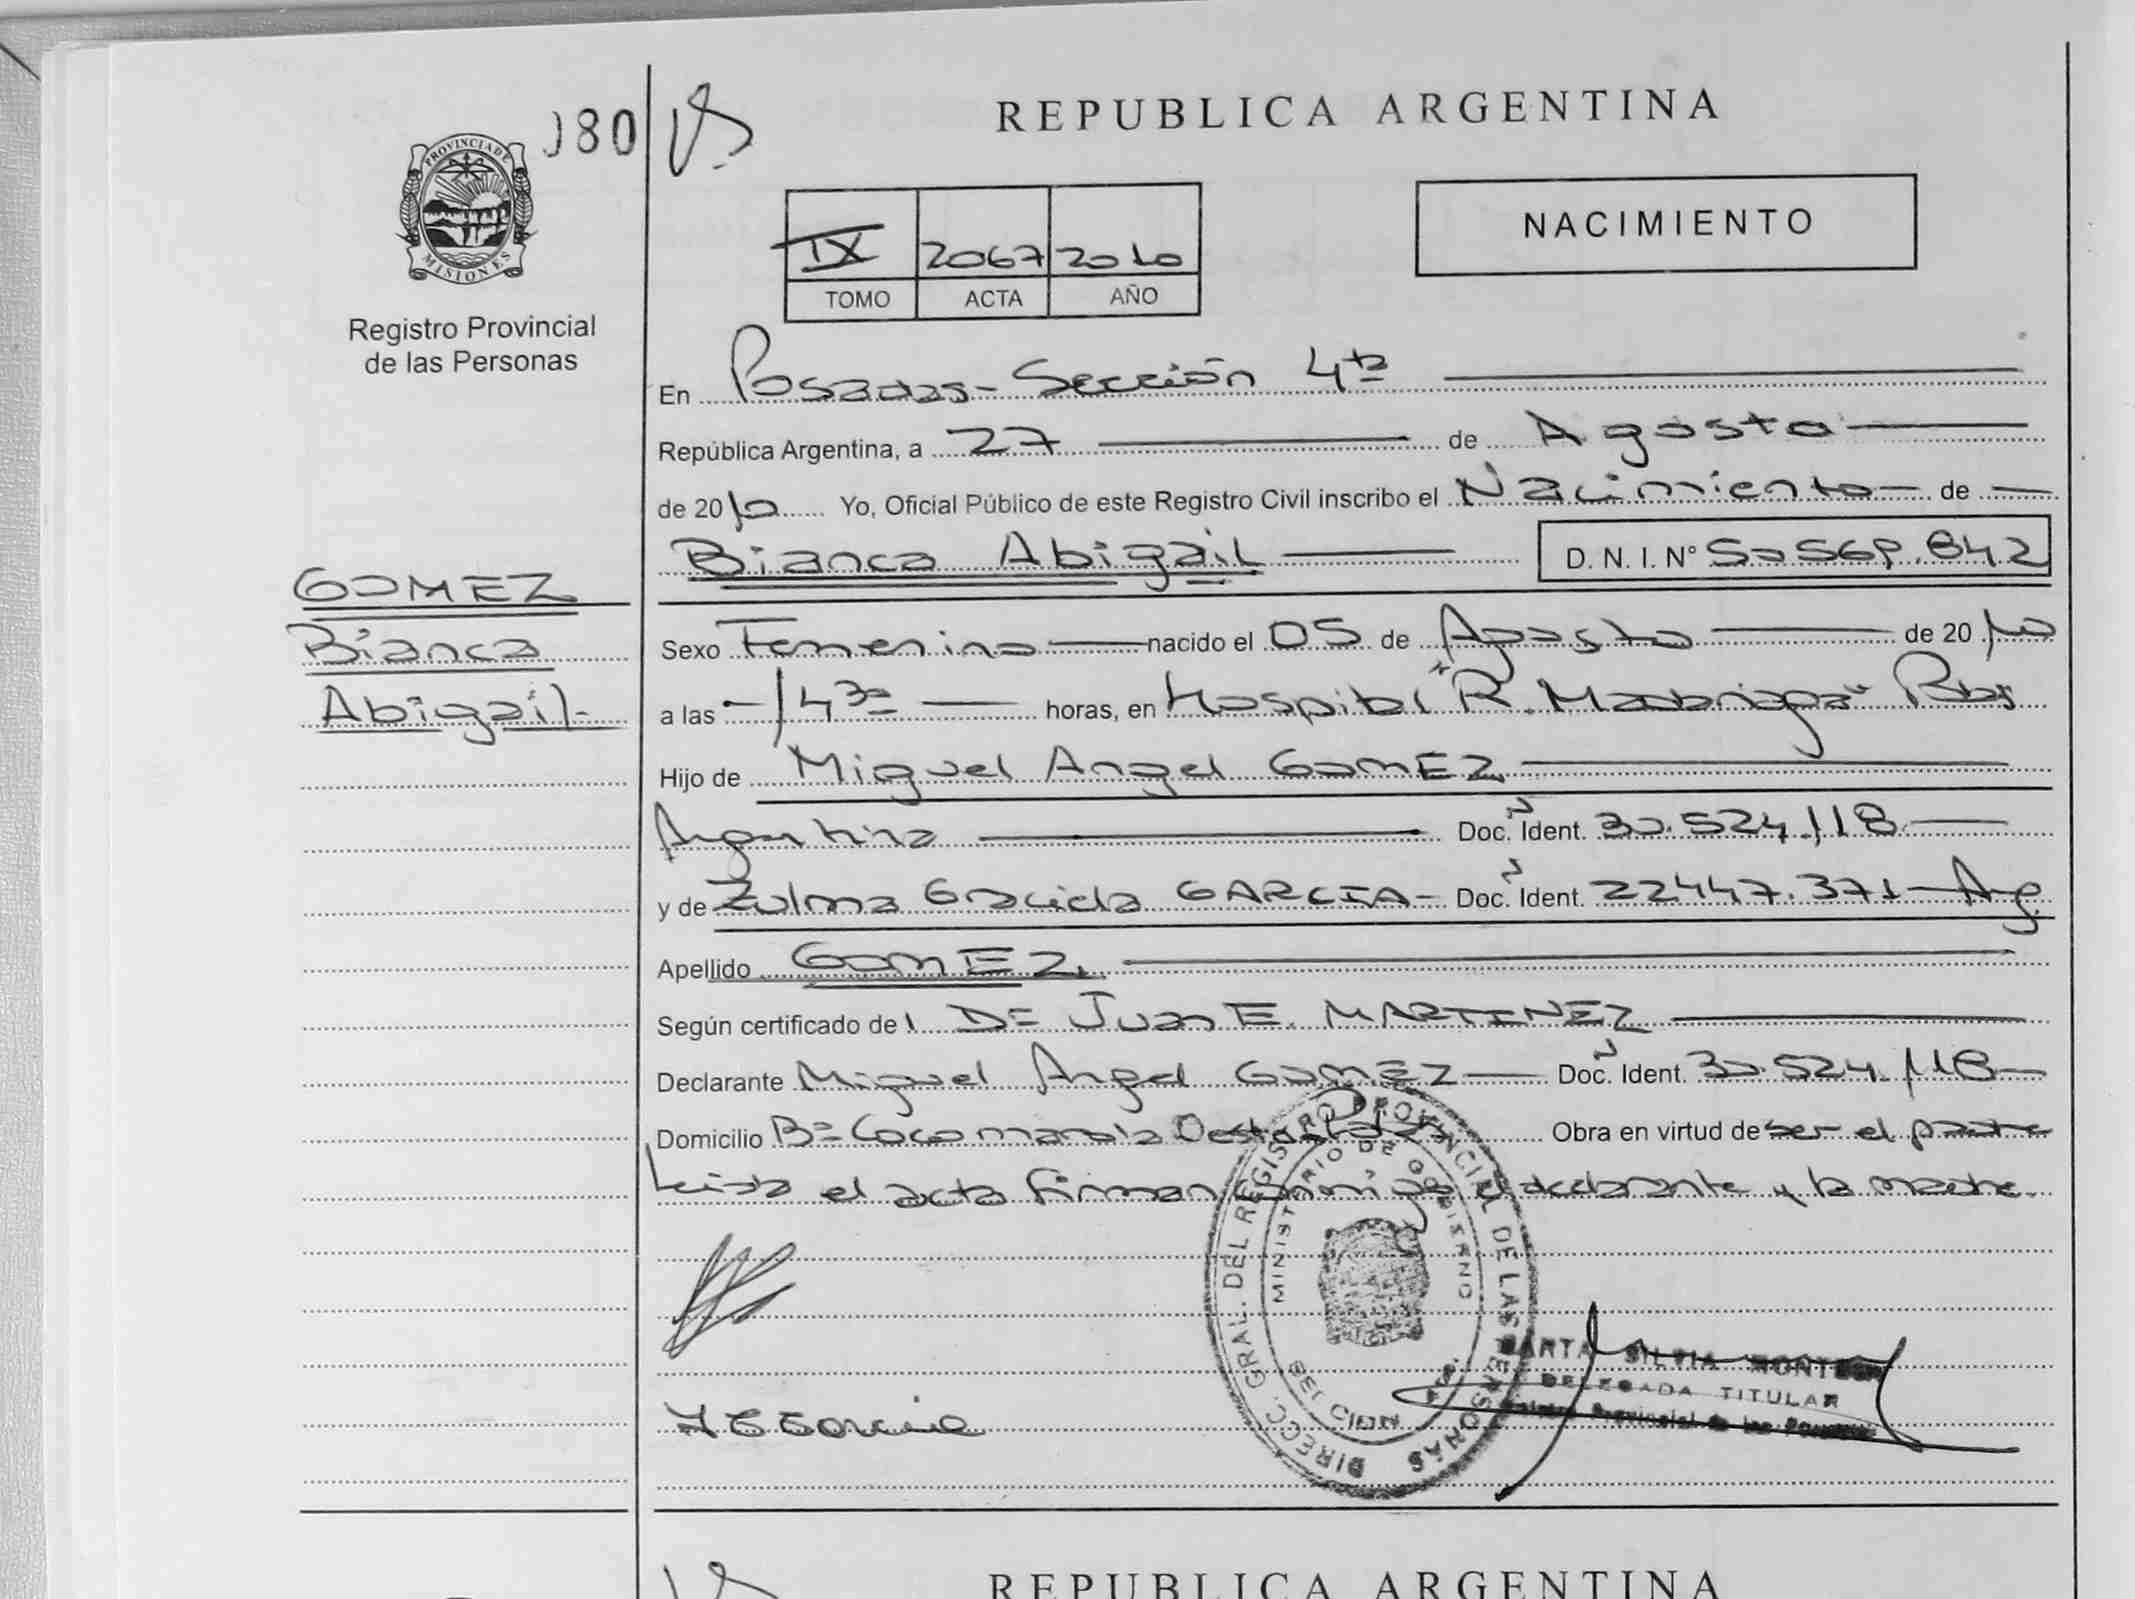 080
PROVINCIA DE
MISIONES
Registro Provincial
de las Personas
REPUBLICA ARGENTINA
NACIMIENTO
IX 2067 2010
TOMO ACTA AÑO
En Posadas - Sección 4ta
República Argentina, a 27 de Agosto
de 2010 Yo, Oficial Público de este Registro Civil inscribo el Nacimiento de
Bianca Abigail D. N. I. N° 50.569.842
GOMEZ
Bianca
Abigail
Sexo Femenino nacido el 05 de Agosto de 2010
a las 14 30 horas, en Hospital "R. Madariaga" Pdas
Hijo de Miguel Angel GOMEZ
Argentina Doc. Ident. 30.524.118
y de Zulma Graciela GARCIA - Doc. Ident. 22447.371 - Arg.
Apellido GOMEZ
Según certificado del Dr Juan E. MARTINEZ
Declarante Miguel Angel GOMEZ Doc. Ident. 30.524.118
Domicilio Bº Cocomarola Oeste Obra en virtud de ser el padre
Leida el acta firman conmigo el declarante y la madre.
DIRECC. GRAL. DEL REGISTRO PROVINCIAL DE LAS PERSONAS
MINISTERIO DE GOBIERNO
MARTA SILVIA
DELEGADA TITULAR
Registro Provincial de las Personas
REPUBLICA ARGENTINA